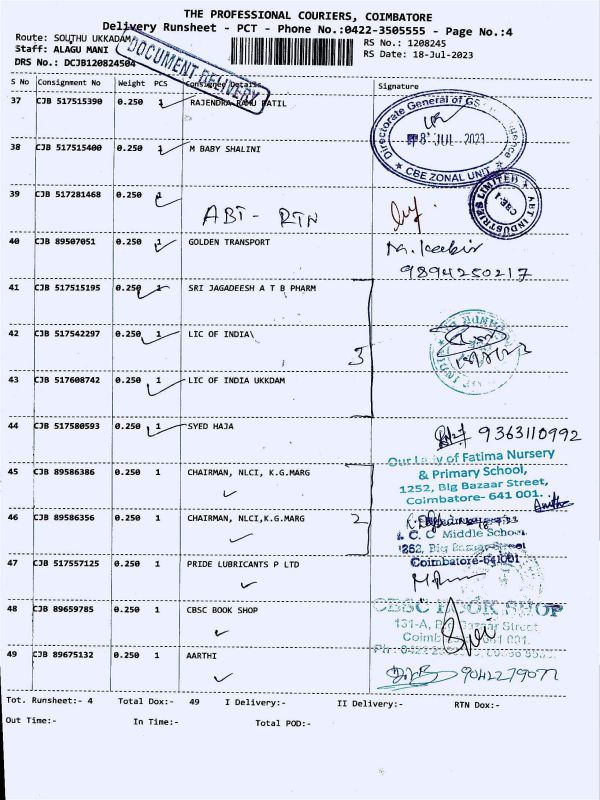 THE PROFESSIONAL COURIERS, COIMBATORE
Delivery Runsheet - PCT - Phone No.:0422-3505555 - Page No.:4
Route: SOUTHU UKKADAM
RS No.: 1208245
Staff: ALAGU MANI
RS Date: 18-Jul-2023
DRS No.: DCJB120824504
DOCUMENT DELIVERY
S No Consignment No Weight PCS Consignee Details Signature
37 CJB 517515390 0.250 1 RAJENDRA RAMU PATIL
Directorate General of GS
8 JUL 2023
CBE ZONAL UNIT
38 CJB 517515400 0.250 1 M BABY SHALINI
39 CJB 517281468 0.250 1
ABT - RTN
ABT INDUSTRIES LIMITED
CBE-1
40 CJB 89507051 0.250 1 GOLDEN TRANSPORT
9894250217
41 CJB 517515195 0.250 1 SRI JAGADEESH A T B PHARM
42 CJB 517542297 0.250 1 LIC OF INDIA\
3
43 CJB 517608742 0.250 1 LIC OF INDIA UKKDAM
44 CJB 517580593 0.250 1 SYED HAJA
9363110992
45 CJB 89586386 0.250 1 CHAIRMAN, NLCI, K.G.MARG
Our Lady of Fatima Nursery
& Primary School,
1252, Big Bazaar Street,
Coimbatore- 641 001.
46 CJB 89586356 0.250 1 CHAIRMAN, NLCI,K.G.MARG
2
C. C Middle School
1252, Big Bazaar Street
Coimbatore-641001
47 CJB 517557125 0.250 1 PRIDE LUBRICANTS P LTD
48 CJB 89659785 0.250 1 CBSC BOOK SHOP
CBSC BOOK SHOP
131-A, Big Bazaar Street
49 CJB 89675132 0.250 1 AARTHI
9042279077
Tot. Runsheet:- 4 Total Dox:- 49 I Delivery:- II Delivery:- RTN Dox:-
Out Time:- In Time:- Total POD:-